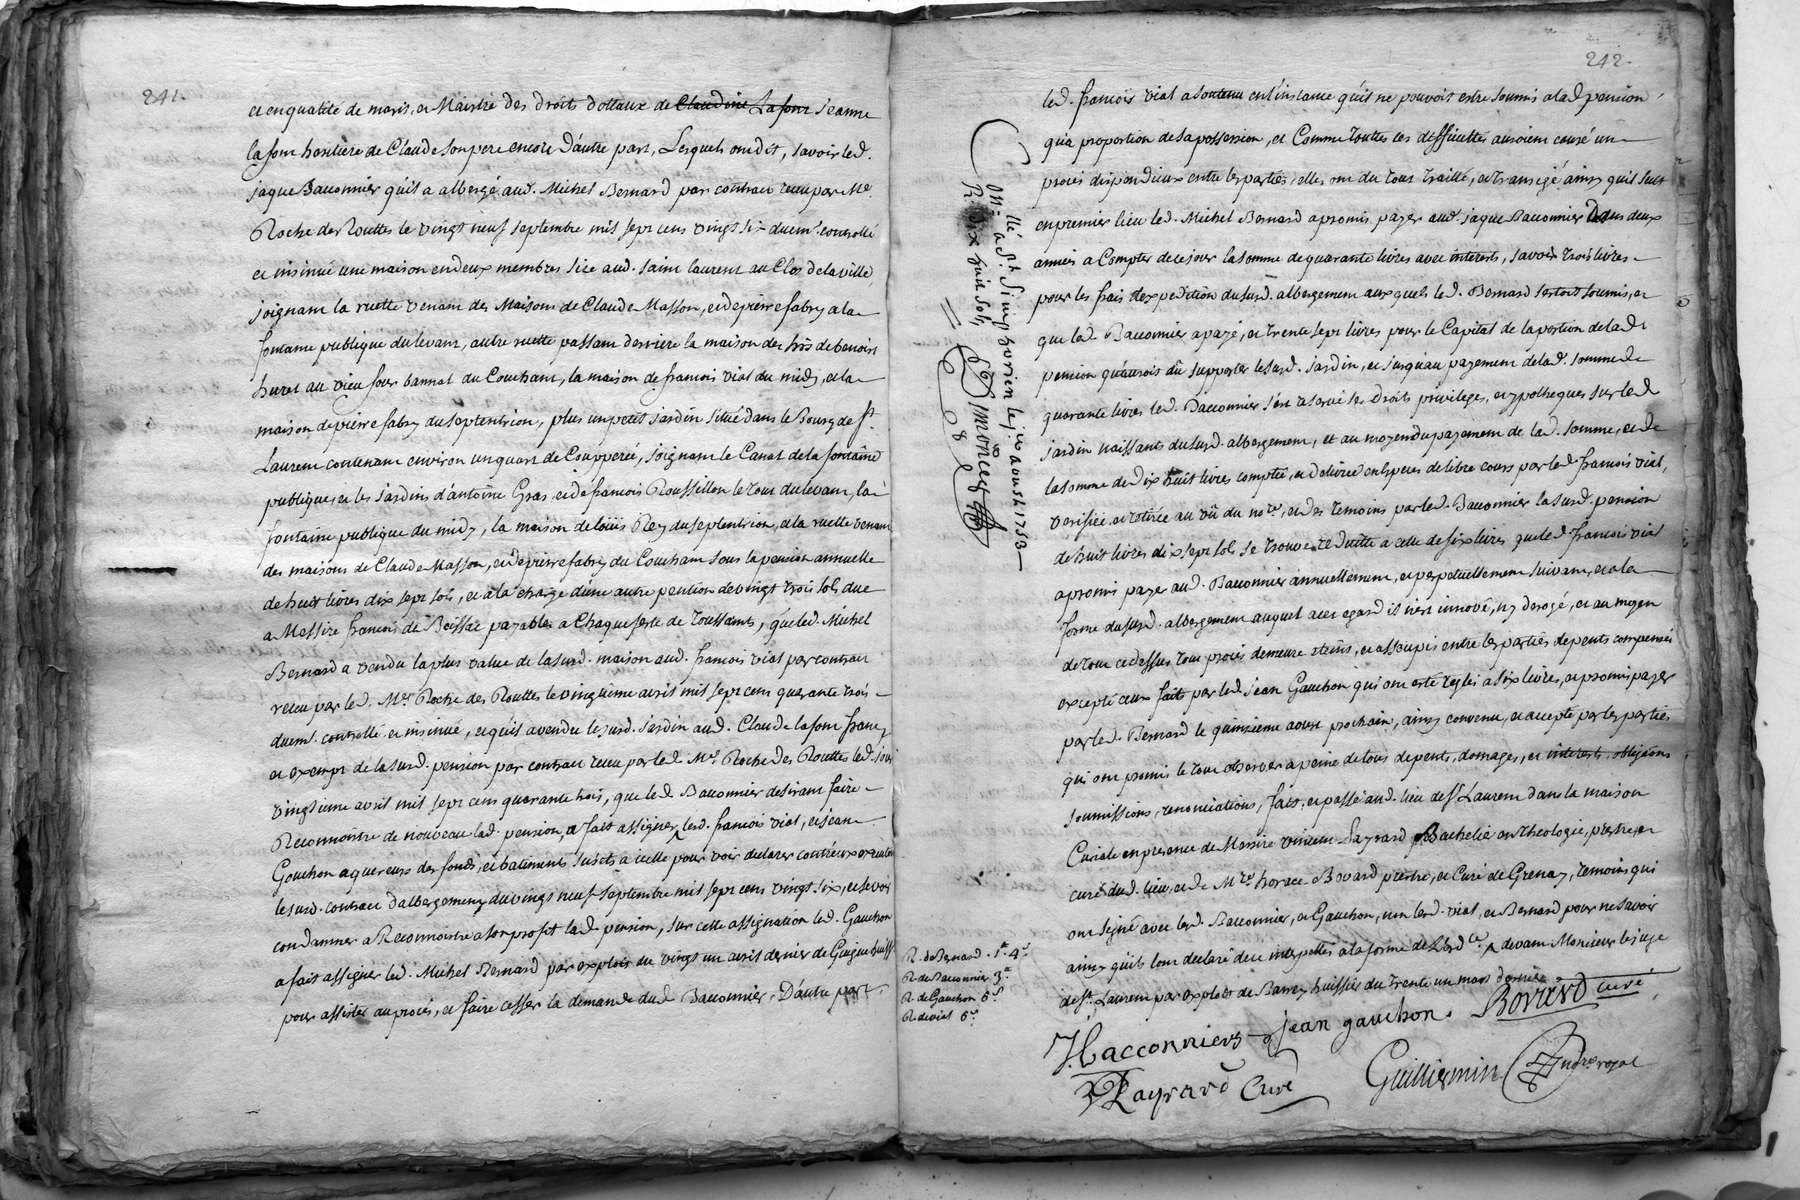 241.
et en qualité de maris, et Maistre des droits dottaux de Claudine Lafont Jeanne
lafont heritiere de Claude son pere encore d'autre part, Lesquels ont dit, savoir led.
jaque Bacconnier qu'il a albergé aud. Michel Bernard par contract receu par Me
Roche des Routtes le vingt neuf septembre mil sept cens vingt six duemt controllé
et insinué une maison en deux membres size aud. saint laurent au Clos de la ville,
joignant la ruette venant des Maisons de Claude Masson, et de pierre fabry a la
fontaine publique du levant, autre ruette passant derriere la maison des hrs de benoist
huret au vieu four bannal du Couchant, la maison de francois vial du midy, et la
maison de pierre fabry du septentrion, plus un petit jardin situé dans le Bourg de st.
Laurent contenant environ un quart de Coupperée, joignant le Canal de la fontaine
publique, et les jardins d'antoine Gras, et de francois Roussillon le tout du levant, la
fontaine publique du midy, la maison de loüis Rey du septentrion, et la ruette venant
des maisons de Claude Masson, et de pierre fabry du Couchant sous la pension annuelle
de huit livres dix sept sols, et a la charge d'une autre pention de vingt trois sols due
a Messire francois de Boissac payables a Chaque feste de Toussaints, que led. Michel
Bernard a vendu la plus value de la surd. maison aud. francois vial par contract
receu par led. Me Roche des Routtes le vingtieme avril mil sept cens quarante trois
duemt. controllé et insinué, et qu'il a vendu le surd. jardin aud. Claude lafont franc
et exempt de la surd. pension par contract receu par led. Me Roche des Routtes led. jour
vingtieme avril mil sept cens quarante trois, que led. Bacconnier desirant faire
Reconnoitre de nouveau lad. pension, a fait assigner led. francois vial, et jean
Gauchon aquereurs des fonds, et batiments sujets a icelle pour voir declarer contr'eux executoire
le surd. contract d'albergement du vingt neuf septembre mil sept cens vingt six, et se voir
condamner a Reconnoitre a son profit lad. pension, sur cette assignation led. Gauchon
a fait assigner led. Michel Bernard par exploit du vingt un avril dernier de Guigue huissr
pour assister au procés, et faire cesser la demande dud. Bacconnier, D'autre part
242.
led. francois vial a soutenu en l'instance qu'il ne pouvoit estre soumis a lad. pension
qu'a proportion de sa possession, et Comme touttes ces difficultés auroient causé un
procés dispendieux entre les parties, elles ont du tout traitté, et transigé ainsy qu'il suit
en premier lieu led. Michel Bernard a promis payer aud. jaque Bacconnier dans deux
années a Compter de ce jour la somme de quarante livres avec interets, savoir trois livres
pour les frais d'expedition du surd. albergement aux quels led. Bernard s'estoit soumis, et
que led. Bacconnier a payé, et trente sept livres pour le Capital de la portion de lad.
pension qu'auroit dû supporter le surd. jardin, et jusqu'au payement de lad. somme de
quarante livres led. Bacconnier s'est reservé ses droits privilege, et ypotheques sur led.
jardin naissants du surd. albergement, et au moyen du payement de lad. somme, et de
la somme de dix huit livres comptée, et delivrée en especes de libre cours par led. francois vial,
verifiée et retirée au vû du nore, et des temoins par led. Bacconnier la surd. pension
de huit livres dix sept sols se trouve reduitte a celle de six livres que led. francois vial
a promis payer aud. Bacconnier annuellement, et perpetuellement suivant, et a la
forme du surd. albergement auquel a cet egard il n'est innové, ny derogé, et au moyen
de tout ce dessus tout procés demeure éteint, et assoupi entre les parties depents compensés
excepté ceux faits par led. jean Gauchon qui ont esté reglés a six livres, et promis payer
par led. Bernard le quinzieme aoust prochain, ainsy convenu, et accepté par les parties
qui ont promis le tout observer a peine de tous depents, domages, et interets, obligations
soumissions, renonciations, fait, et passé aud. lieu de st. Laurent dans la maison
Curiale en presence de Messire vincent Layrard Bachelié en theologie, prestre, et
curé dud. lieu, et de Mre horace Bovard prestre, et Curé de Grenay, temoins qui
ont signé avec lesd. Bacconnier, et Gauchon, non lesd. vial, et Bernard pour ne savoir
ainsy qu'ils l'ont declaré de ce interpellés a la forme de l'ord.ce devant Monsieur le juge
de st. Laurent par exploit de Barrey huissier du trente un mars dernier
llé a St. Simphorien le jer aoust 1753
Rt. dix huit sols
Simoncet
R. de Bernard . 1tt 4s
R. de Bacconnier 3tt
R. de Gauchon 6s
R. de vial 6s
J. Bacconniers jean gauchon. Bovard curé
Layrard Curé Guilliermin nore royal